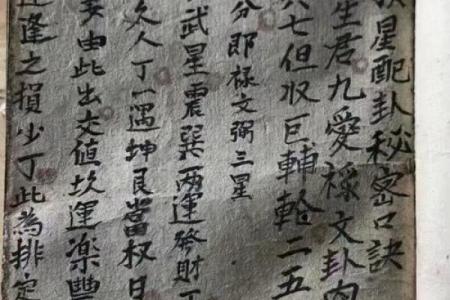 星配卦秘密口訣
生君九愛祿文卦内
六七但收巨輔輪二五
分郎祿文弼三星
武星震巽兩運發財丁
久人丁一遇坤艮當权日
由此出交值坎運凓豐
逢之損少丁此為排定